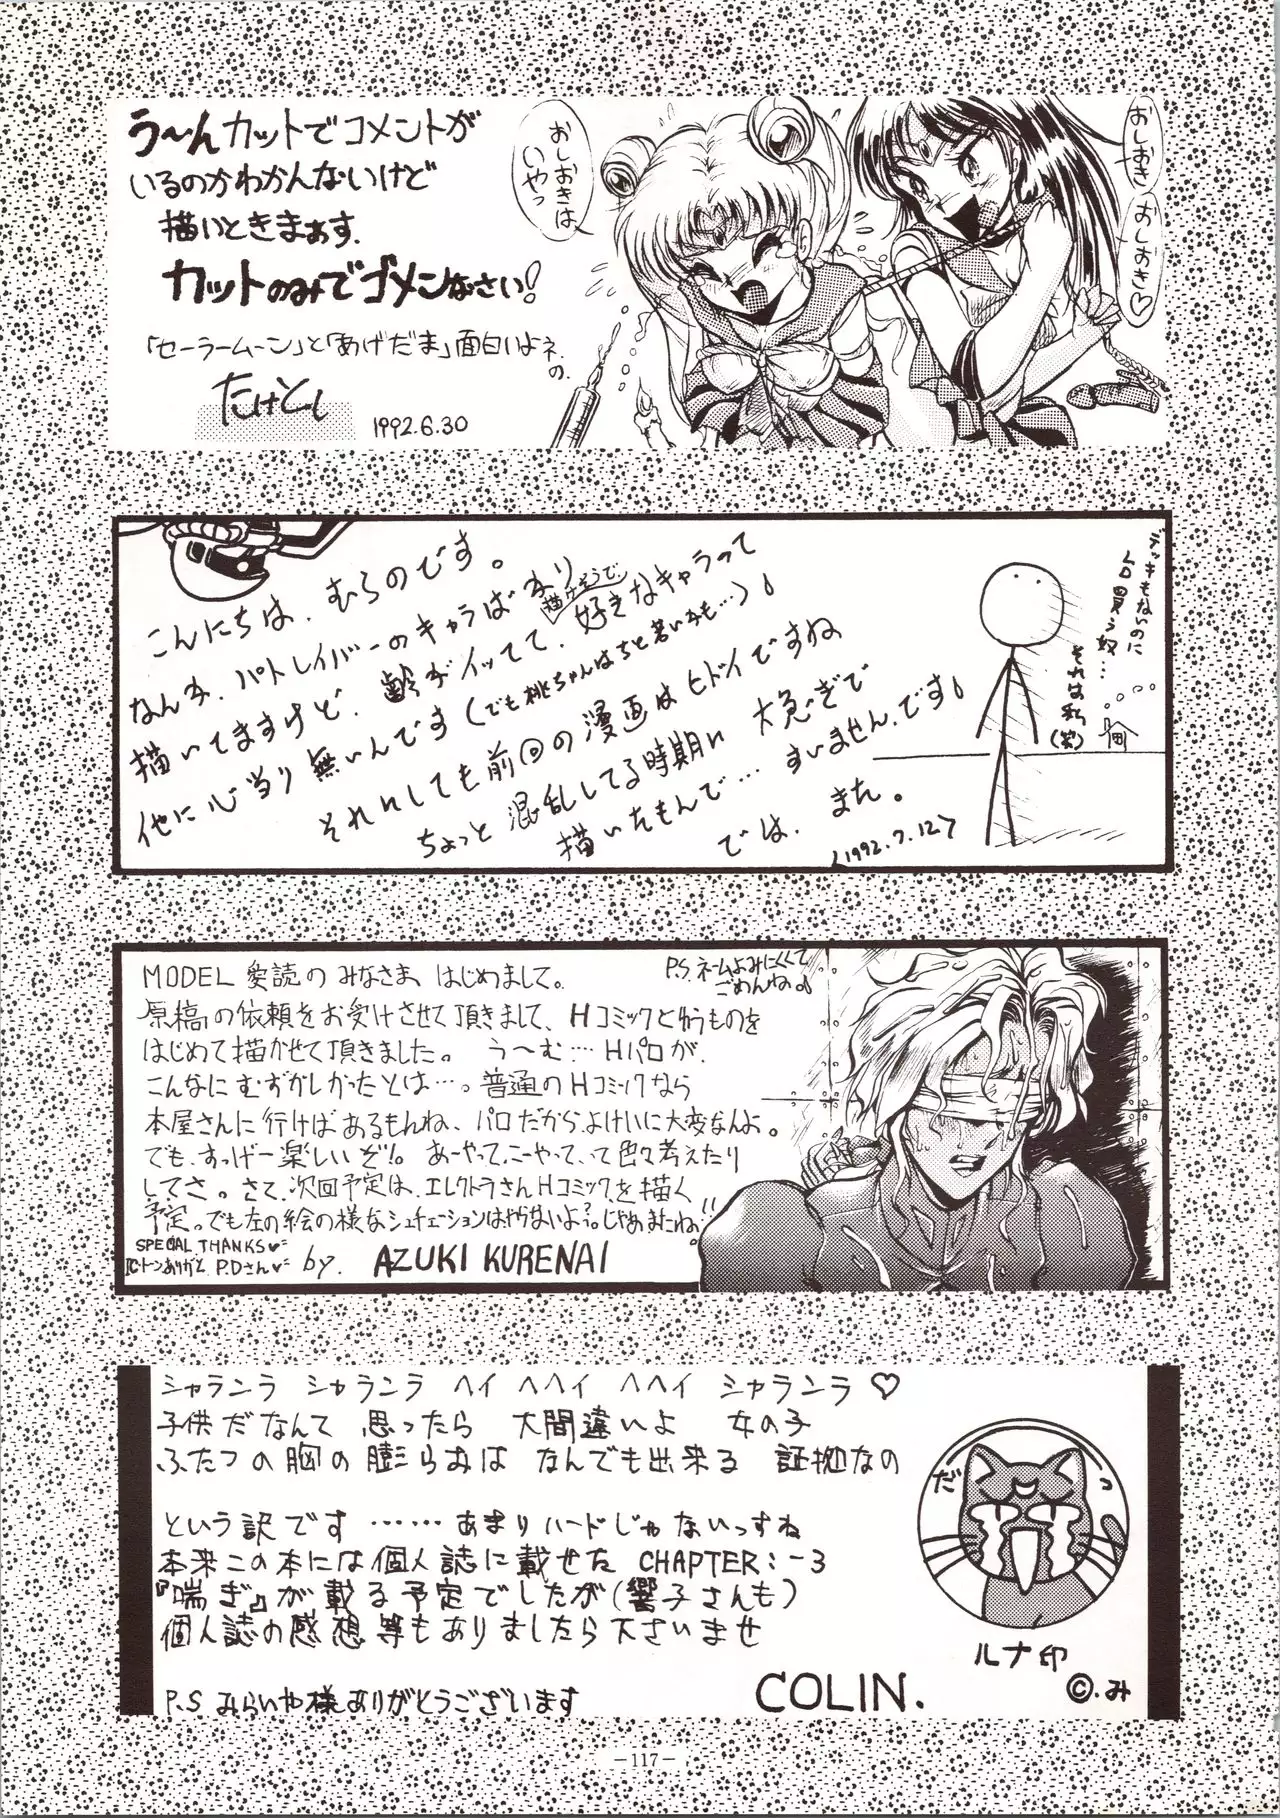 う〜んカットでコメントが
いるのかわかんないけど
描いときまぁす.
カットのみでゴメンなさい!
「セーラームーン」と「あげだま」面白いよネの.
たけとし
1992.6.30
おしおきは
いやっ
おしおき
おしおき♡
こんにちは、むらのです。
なんか、パトレイバーのキャラばかり
描いてますけど、齢がイッてて、描けそうで好きなキャラって
他に心当り無いんです(でも桃ちゃんはちと若いかも…)♪
それにしても前回の漫画はヒドイですね
ちょっと混乱してる時期に大急ぎで
描いたもんで…すいません、です♪
では、また。
<1992.7.12>
デッキもないのに
LD買う奴…
それは私(笑)
MODEL愛読のみなさまはじめまして。
原稿の依頼をお受けさせて頂きまして、Hコミックと゛ゆうものを
はじめて描かせて頂きました。う〜む…Hパロが、
こんなにむずかしかったとは…。普通のHコミックなら
本屋さんに行けばあるもんね、パロだからよけいに大変なんよ。
でも、すっげー楽しいぞ!。あーやって、こーやって、って色々考えたり
してさ。さて、次回予定は、エレクトラさんHコミックを描く
予定。でも左の絵の様なシュチェーションはやらないよ?。じゃあまたね!!
SPECIAL THANKS♥
ICトーンありがと P.Dさん♥ by. AZUKI KURENAI
P.S.ネームよみにくくて
ごめんね♪
シャランラ シャランラ ヘイ ヘヘイ ヘヘイ シャランラ♡
子供だなんて 思ったら 大間違いよ 女の子
ふたつの胸の膨らみは なんでも出来る 証拠なの
という訳です ……あまりハードじゃないっすね
本来この本には個人誌に載せた CHAPTER:-3
『喘ぎ』が載る予定でしたが(響子さんも)
個人誌の感想等もありましたら下さいませ
P.S みらいや様ありがとうございます
COLIN.
だ
っ
ルナ印
©.み
-117-